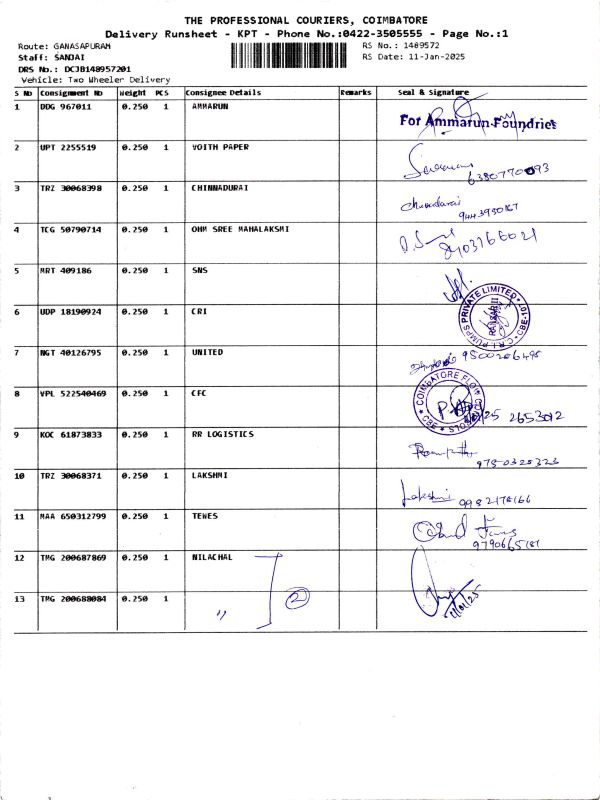 THE PROFESSIONAL COURIERS, COIMBATORE
Delivery Runsheet - KPT - Phone No.:0422-3505555 - Page No.:1
Route: GANASAPURAM RS No.: 1489572
Staff: SANJAI RS Date: 11-Jan-2025
DRS No.: DCJB148957201
Vehicle: Two Wheeler Delivery
S No Consignment No Weight PCS Consignee Details Remarks Seal & Signature
1 DDG 967011 0.250 1 AMMARUN For Ammarun Foundries
2 UPT 2255519 0.250 1 VOITH PAPER
3 TRZ 30068398 0.250 1 CHINNADURAI Chinnadurai
4 TCG 50790714 0.250 1 OHM SREE MAHALAKSMI
5 MRT 409186 0.250 1 SNS
6 UDP 18190924 0.250 1 CRI C.R.I. PUMPS PRIVATE LIMITED
7 NGT 40126795 0.250 1 UNITED
8 VPL 522540469 0.250 1 CFC COIMBATORE CBE
9 KOC 61873833 0.250 1 RR LOGISTICS
10 TRZ 30068371 0.250 1 LAKSHMI Lakshmi
11 MAA 650312799 0.250 1 TEWES
12 TMG 200687869 0.250 1 NILACHAL
13 TMG 200688084 0.250 1 " 2